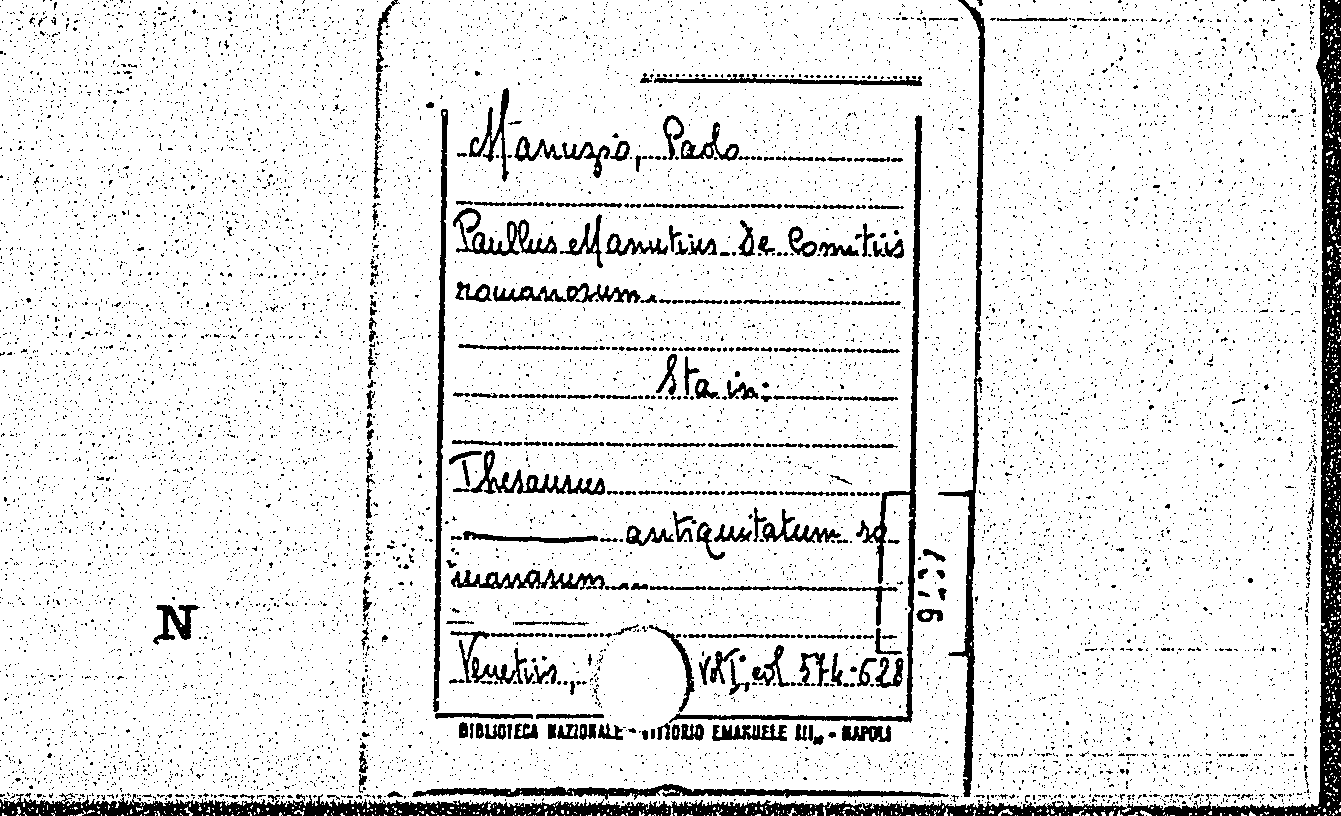 Manuzio, Paolo
Paullus Manutius De Comitiis
romanorum.
Sta in:
Thesaurus
antiquitatum ro
manarum
N
Venetiis, vol I, col 574-628
BIBLIOTECA NAZIONALE - VITTORIO EMANUELE III„ - NAPOLI